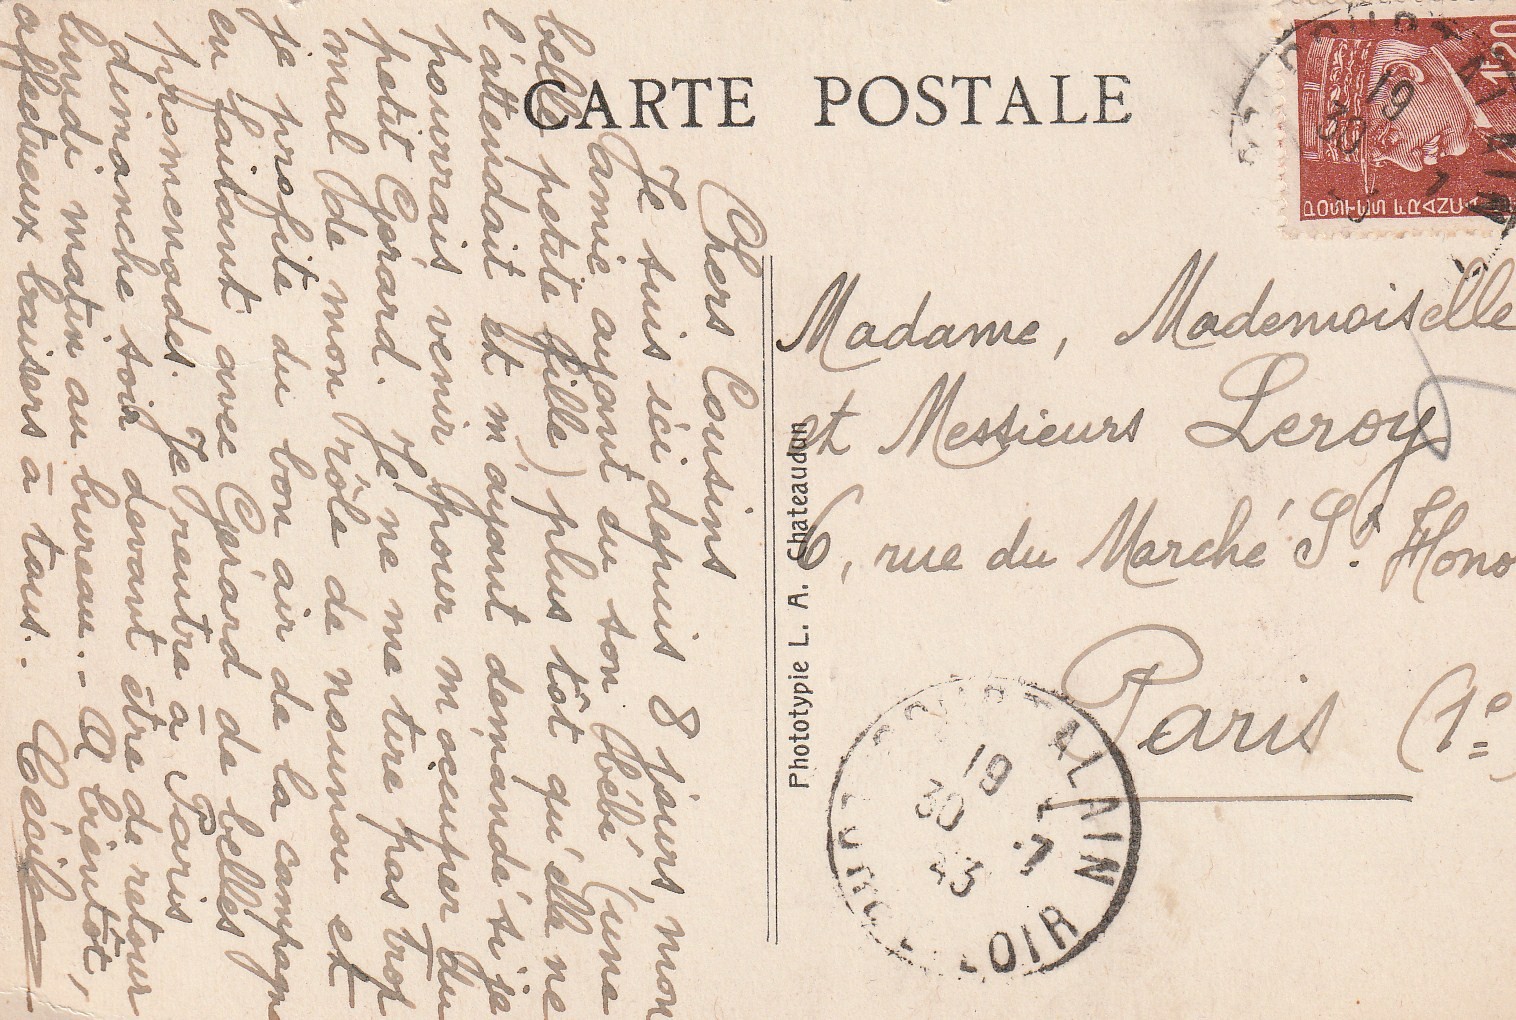 CARTE POSTALE
Chers Cousins
Je suis ici depuis 8 jours, mon
amie ayant eu son bébé (une
belle petite fille) plus tôt qu'elle ne
l'attendait et m'ayant demandé si je
pourrais venir pour m'occuper du
petit Gérard. Je ne me tire pas trop
mal de mon rôle de nounou et
je profite du bon air de la campagne
en faisant avec Gérard de belles
promenades. Je rentre à Paris
dimanche soir devant être de retour
lundi matin au bureau. - A bientôt,
affectueux baisers à tous. - Cécile
Phototypie L. A. Chateaudun
1F20
POSTES FRANÇAISES
19
30
7
Madame, Mademoiselle
et Messieurs Leroy
6, rue du Marché St. Hono
Paris (1e)
COURTALAIN
19
30 -7
43
EURE & LOIR